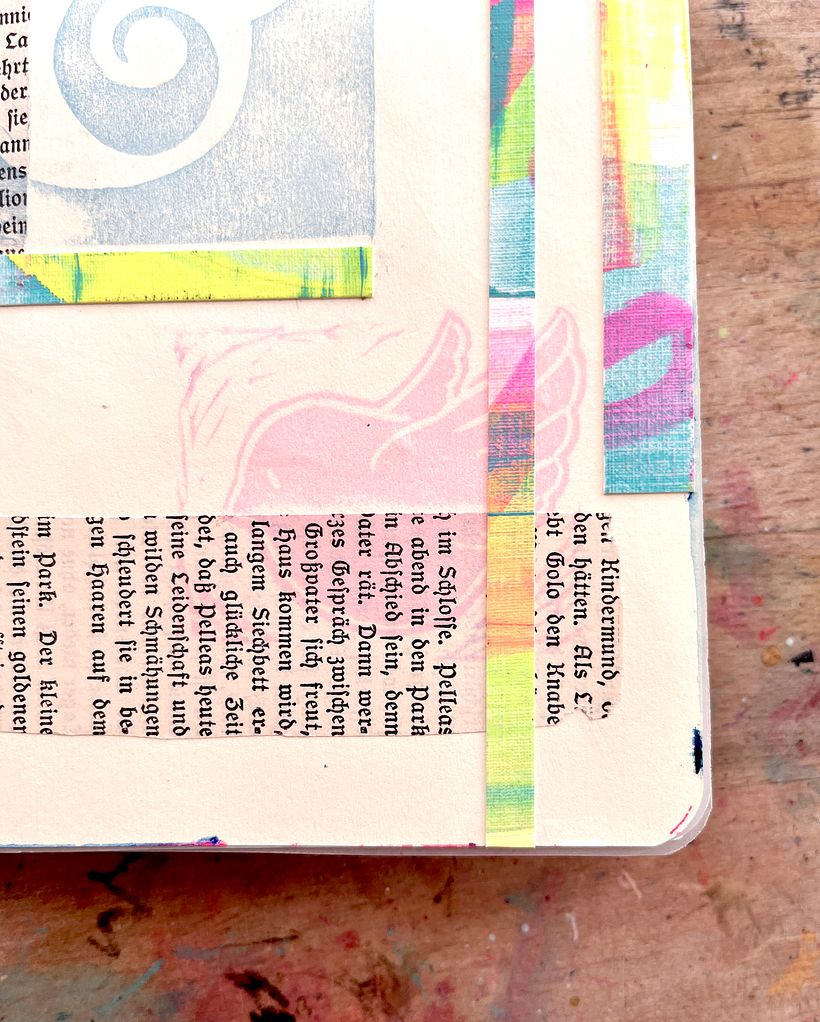 La
hrt
der
ſie
ann
ens
ein
Kindermund,
den hätten. Als
bt Golo den Knabe
im Schloſſe. Pelleas
e abend in den Park
in Abſchied ſein, denn
Vater rät. Dann wer=
zes Geſpräch zwiſchen
Großvater ſich freut,
Haus kommen wird,
langem Siechbett er=
auch glückliche Zeit
det, daß Pelleas heute
ſeine Leidenſchaft und
wilden Schmähungen
ſchleudert ſie in be=
gen Haaren auf dem
im Park. Der kleine
dſtein ſeinen goldenen